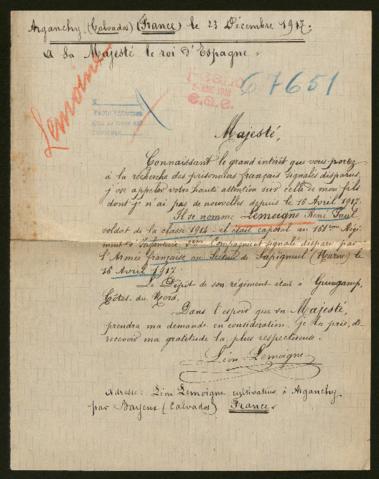 Arganchy (Calvados) (France) le 23 Décembre 1917.
A Sa Majesté le roi d'Espagne.
Lemoine
67651
Majesté,
Connaissant le grand intérêt que vous portez
à la recherche des prisonniers français signalés disparus,
j'ose appeler votre haute attention sur celle de mon fils
dont je n'ai pas de nouvelles depuis le 16 Avril 1917.
Il se nomme Lemoigne René Paul
soldat de la classe 1914 et était caporal au 161ème Régi
ment d'Infanterie Compagnie signalé disparu par
l'Armée française au Secteur de Sapigneul (Marne) le
16 Avril 1917.
Le Dépôt de son régiment était à Guingamp,
Côtes du Nord.
Dans l'espoir que sa Majesté,
prendra ma demande en considération. Je la prie, de
recevoir ma gratitude la plus respectueuse.
Léon Lemoigne
Adresse: Léon Lemoigne cultivateur à Arganchy
par Bayeux (Calvados) France.